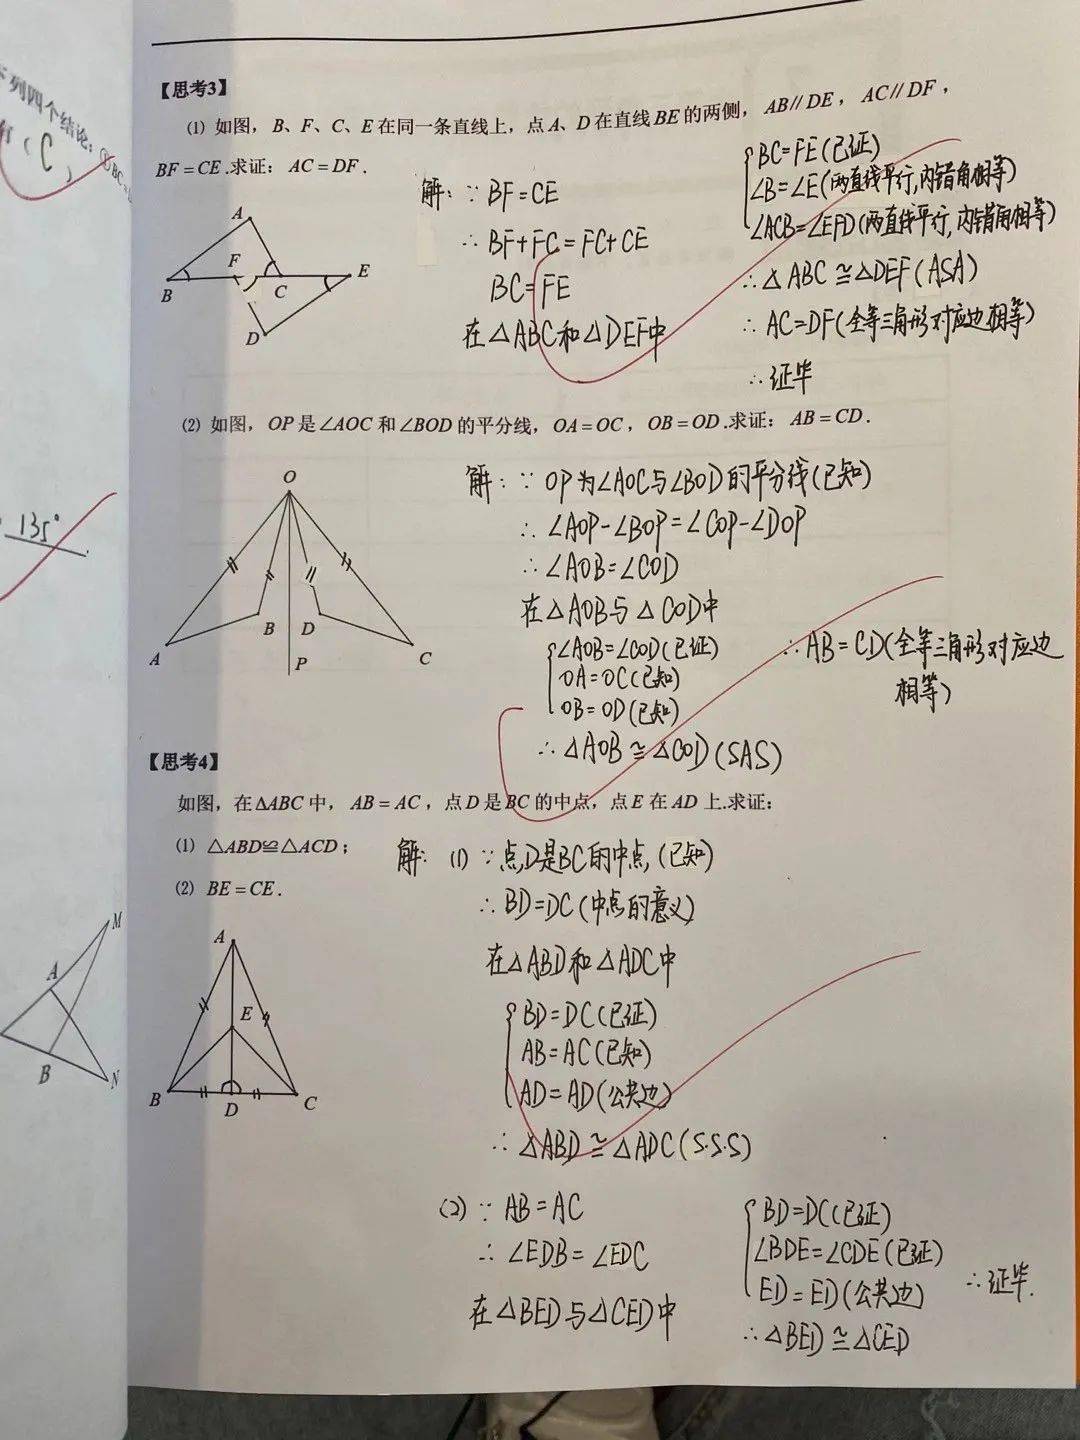 下列四个结论：①BC=
有（C）
135°
M
A
B
N
【思考3】
(1) 如图，B、F、C、E在同一条直线上，点A、D在直线BE的两侧，AB∥DE，AC∥DF，
BF=CE.求证：AC=DF.
A
F
E
B
C
D
解：∵BF=CE
∴BF+FC=FC+CE
BC=FE
在△ABC和△DEF中
BC=FE(已证)
∠B=∠E(两直线平行,内错角相等)
∠ACB=∠EFD(两直线平行,内错角相等)
∴△ABC≅△DEF(ASA)
∴AC=DF(全等三角形对应边相等)
∴证毕
(2) 如图，OP是∠AOC和∠BOD的平分线，OA=OC，OB=OD.求证：AB=CD.
O
B
D
A
P
C
解：∵OP为∠AOC与∠BOD的平分线(已知)
∴∠AOP-∠BOP=∠COP-∠DOP
∴∠AOB=∠COD
在△AOB与△COD中
∠AOB=∠COD(已证)
OA=OC(已知)
OB=OD(已知)
∴△AOB≅△COD(SAS)
∴AB=CD(全等三角形对应边
相等)
【思考4】
如图，在△ABC中，AB=AC，点D是BC的中点，点E在AD上.求证：
(1) △ABD≌△ACD；
(2) BE=CE.
A
E
B
D
C
解：(1)∵点D是BC的中点,(已知)
∴BD=DC(中点的意义)
在△ABD和△ADC中
BD=DC(已证)
AB=AC(已知)
AD=AD(公共边)
∴△ABD≅△ADC(S.S.S)
(2)∵AB=AC
∴∠EDB=∠EDC
在△BED与△CED中
BD=DC(已证)
∠BDE=∠CDE(已证)
ED=ED(公共边)
∴△BED≅△CED
∴证毕.